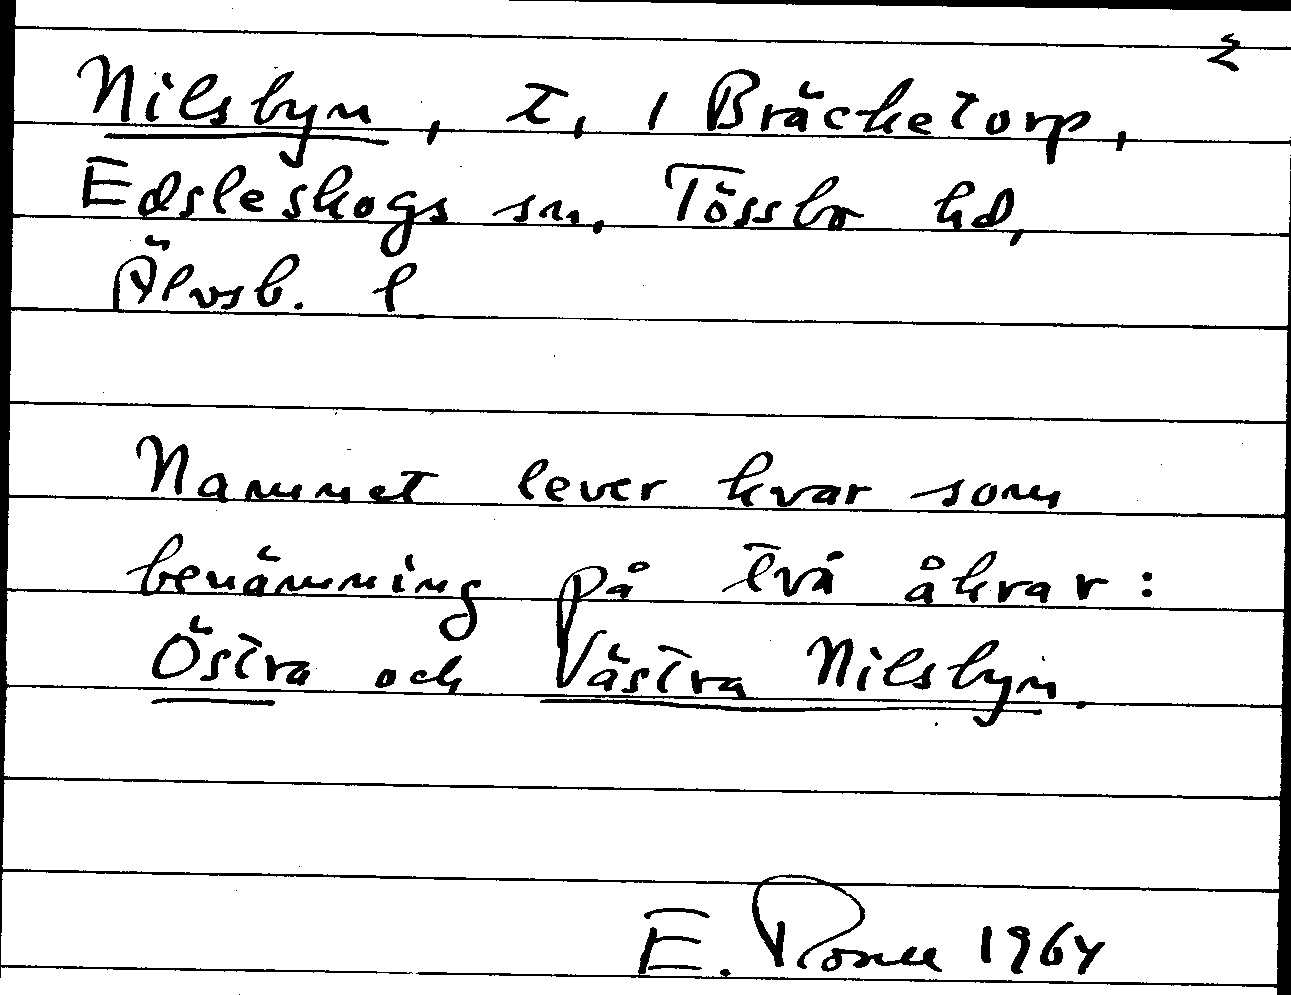 Nilsbyn, t, i Bräcketorp,
Edsleskogs sn, Tössbo hd,
Älvsb. l
Namnet lever kvar som
benämning på två åkrar:
Östra och Västra Nilsbyn.
E. 1964